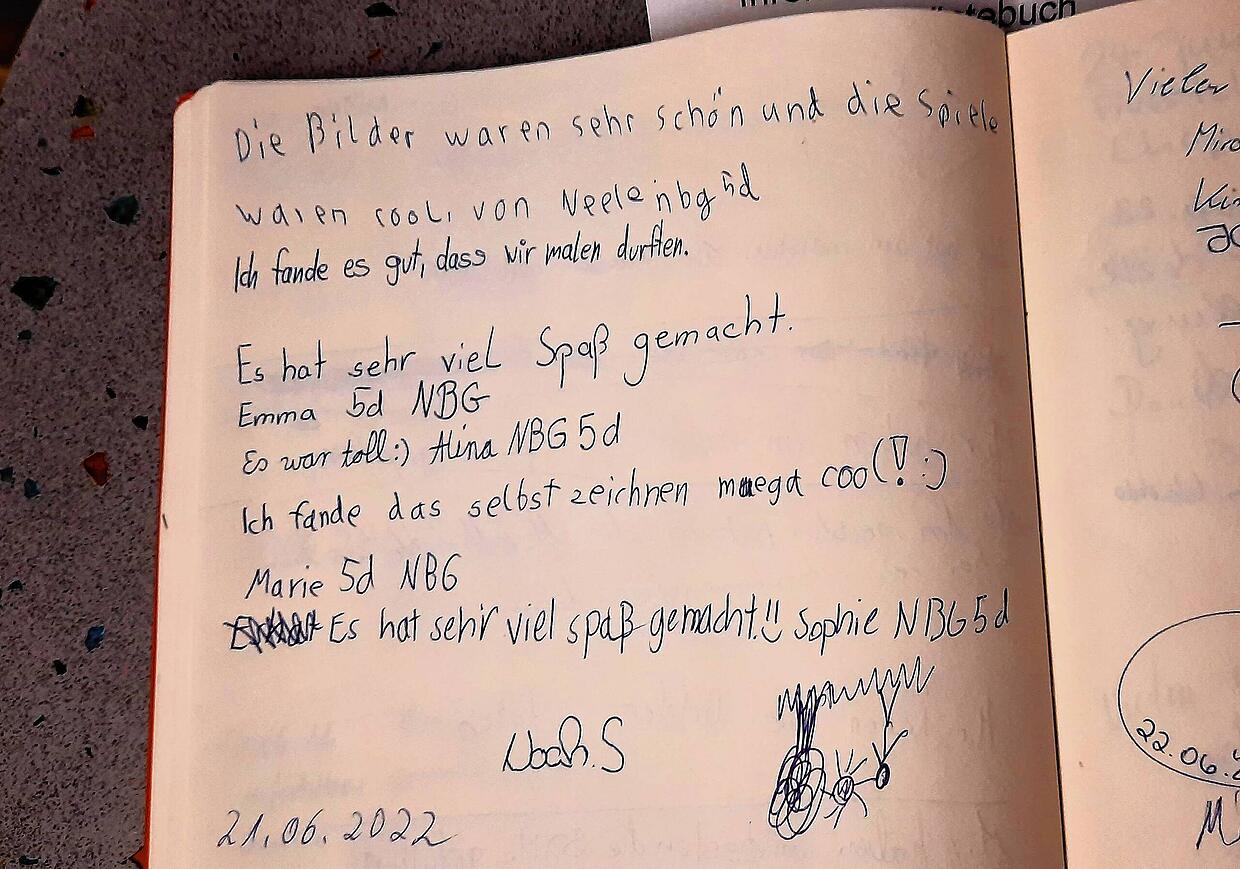 Die Bilder waren sehr schön und die Spiele
waren cool, von Neele nbg 5d
Ich fande es gut, dass wir malen durften.
Es hat sehr viel Spaß gemacht.
Emma 5d NBG
Es war toll:) Alina NBG 5d
Ich fande das selbst zeichnen maega cool! :)
Marie 5d NBG
Es hat sehr viel spaß gemacht!! Sophie NBG 5d
Noah.S
21.06.2022
Vielen
22.06.